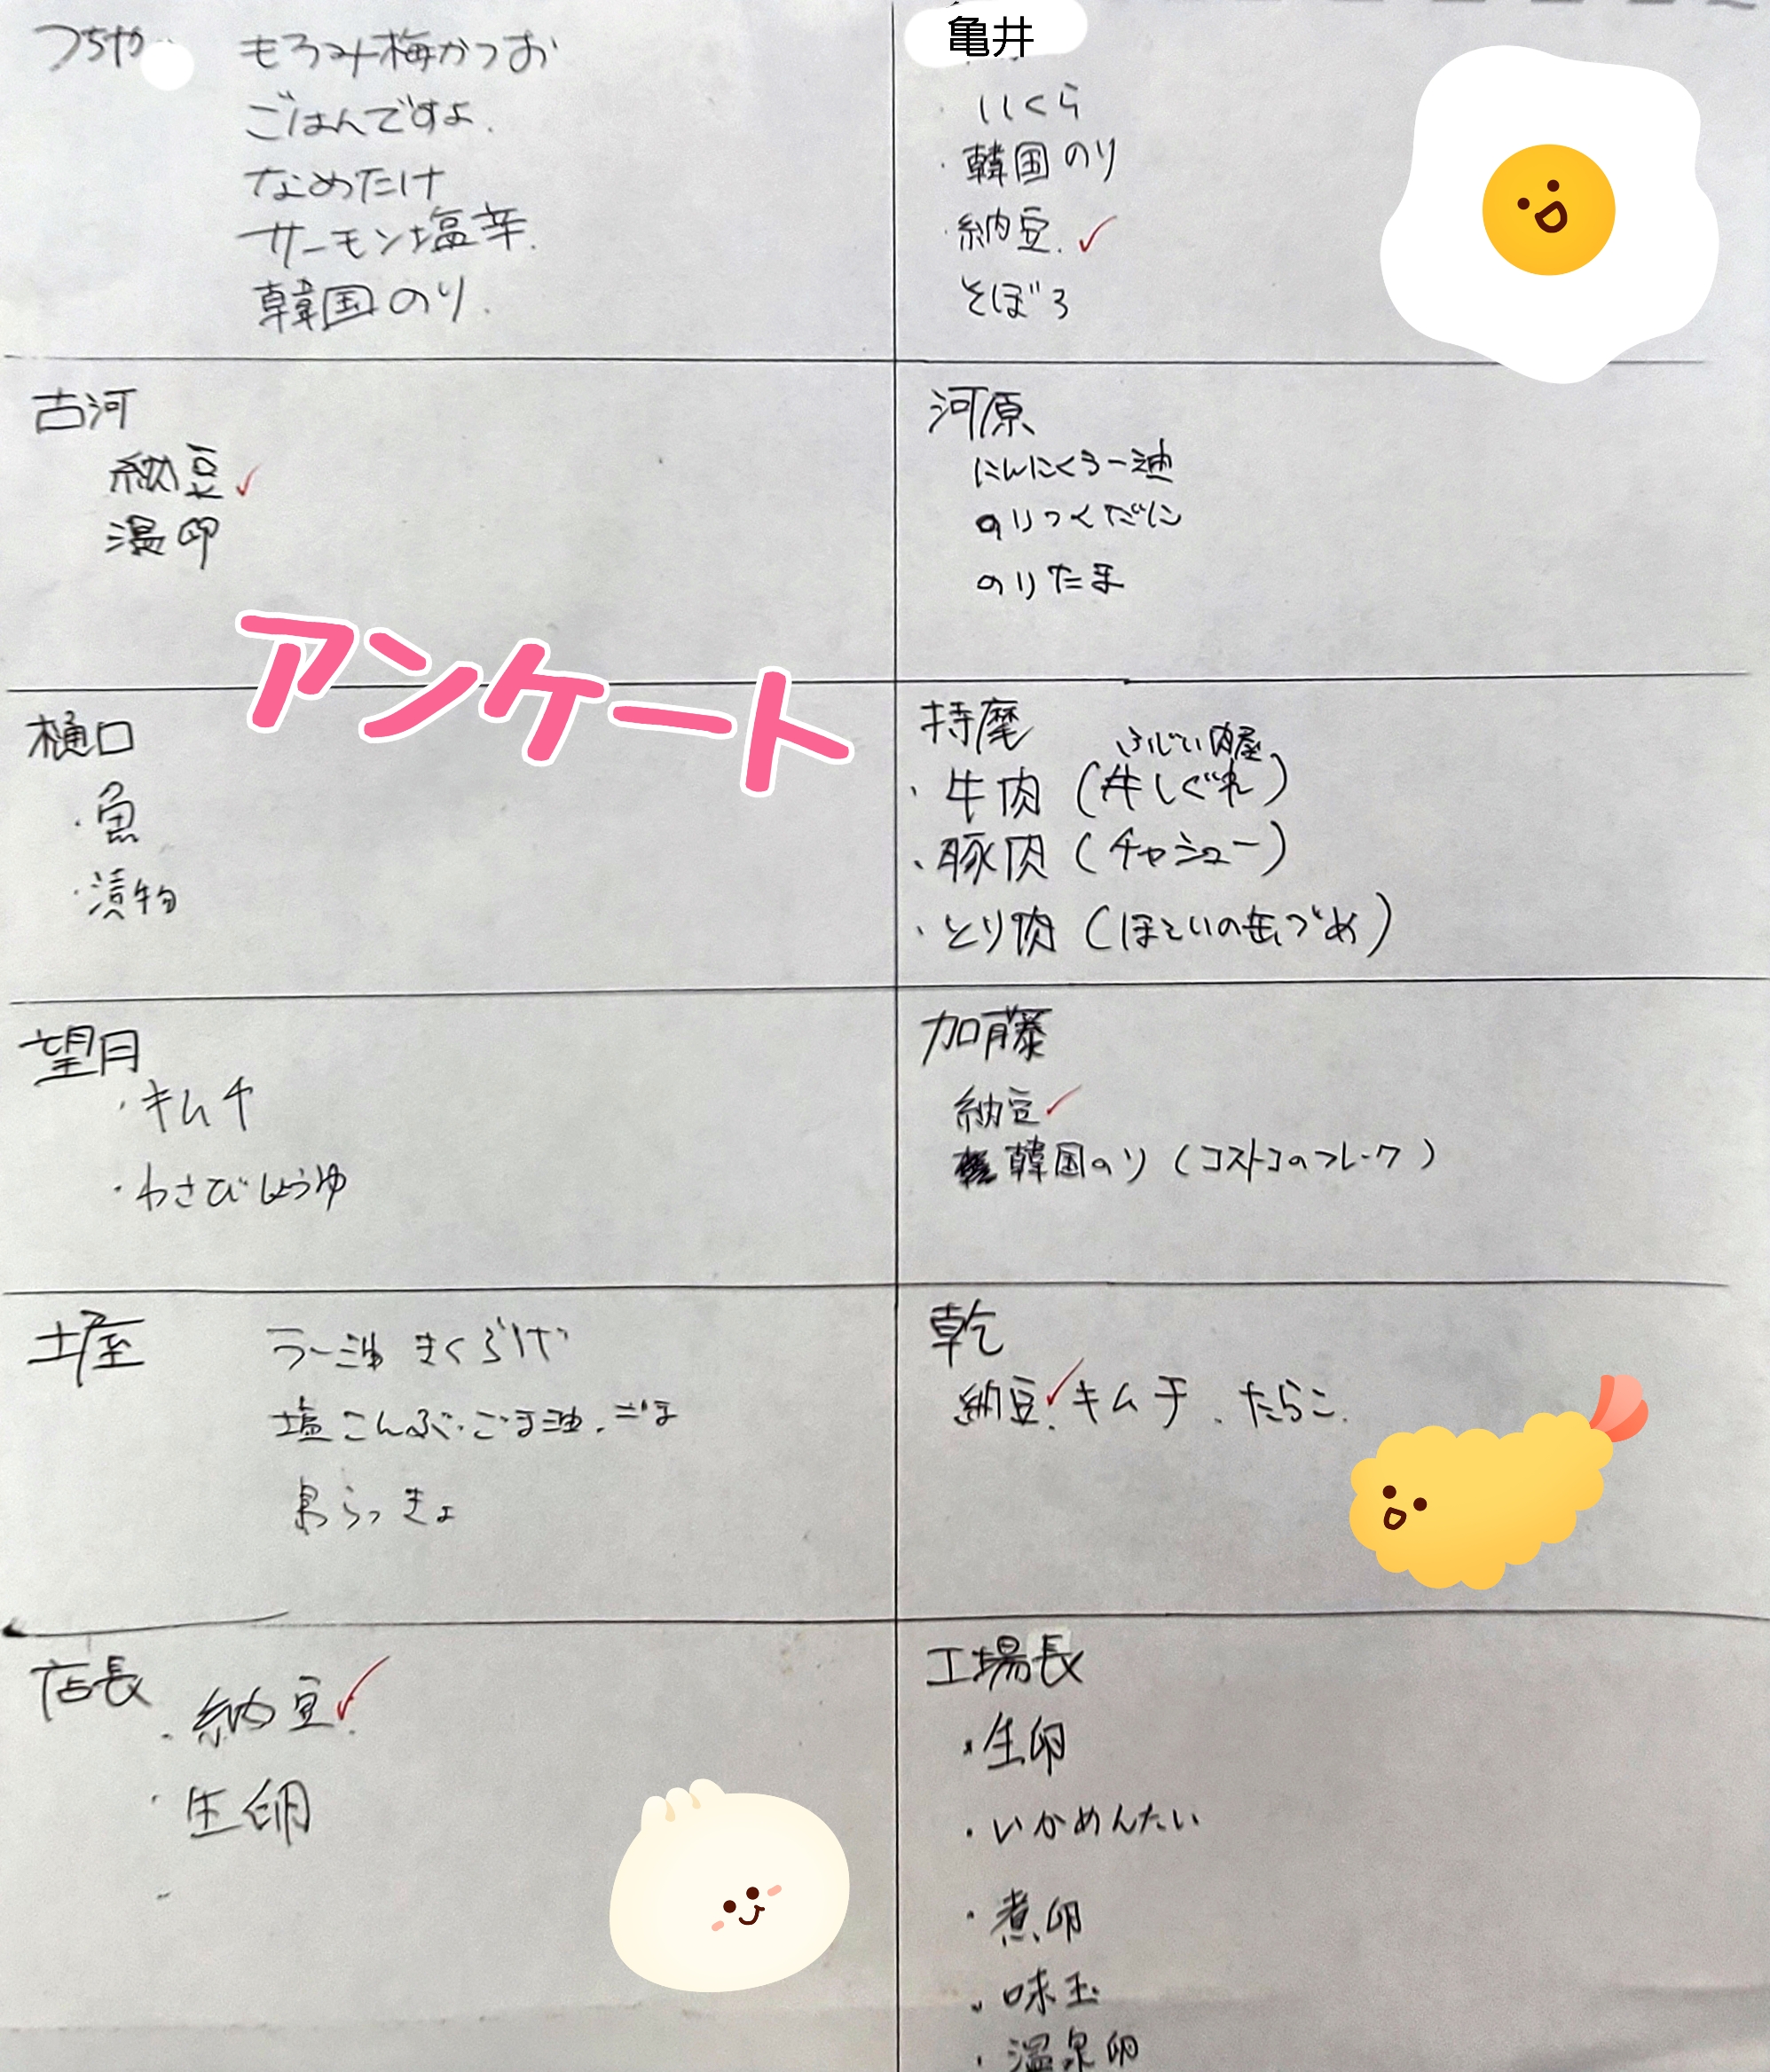 つちや
もろみ梅かつお
ごはんですよ.
なめたけ
サーモン塩辛.
韓国のり.
亀井
いくら
・韓国のり
・納豆.✓
そぼろ
古河
納豆✓
温卵
河原
にんにくラー油
のりつくだに
のりたま
アンケート
樋口
・魚
・漬物
持麾
ふじい肉屋
・牛肉(牛しぐれ)
・豚肉(チャシュー)
・とり肉(ほていの缶づめ)
望月
・キムチ
・わさびしょうゆ
加藤
納豆✓
韓国のり(コストコのフレーク)
土屋
ラー油 きくらげ
塩こんぶ・ごま油.ごま
島らっきょ
乾
納豆✓.キムチ.たらこ.
店長
・納豆✓.
・生卵
工場長
・生卵
・いかめんたい
・煮卵
・味玉
・温泉卵